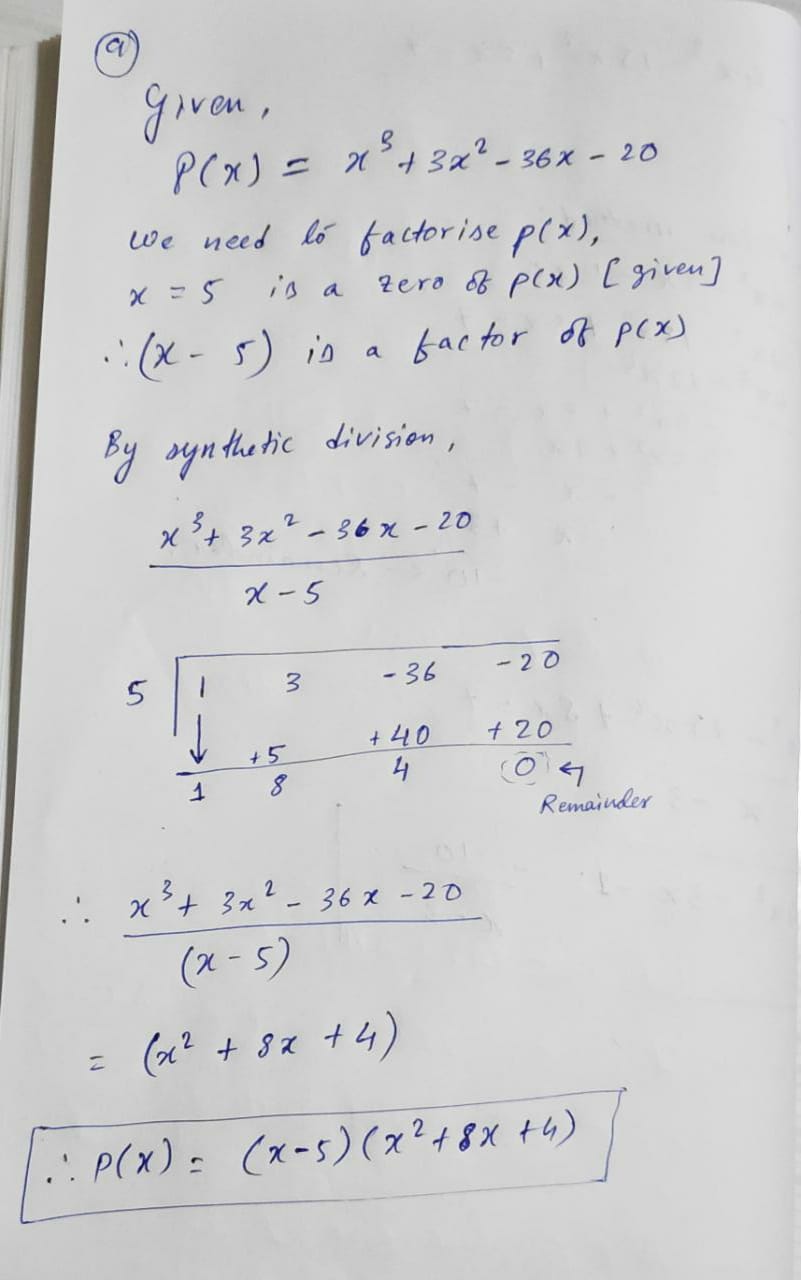 (a)
Given,
P(x) = x³ + 3x² - 36x - 20
We need to factorise p(x),
x = 5 is a zero of p(x) [given]
∴ (x - 5) is a factor of p(x)
By synthetic division,
x³ + 3x² - 36x - 20
x - 5
5 1 3 - 36 - 20
↓ +5 + 40 + 20
1 8 4 0 ←
Remainder
∴ x³ + 3x² - 36x - 20
(x - 5)
= (x² + 8x + 4)
∴ P(x) = (x-5) (x² + 8x + 4)